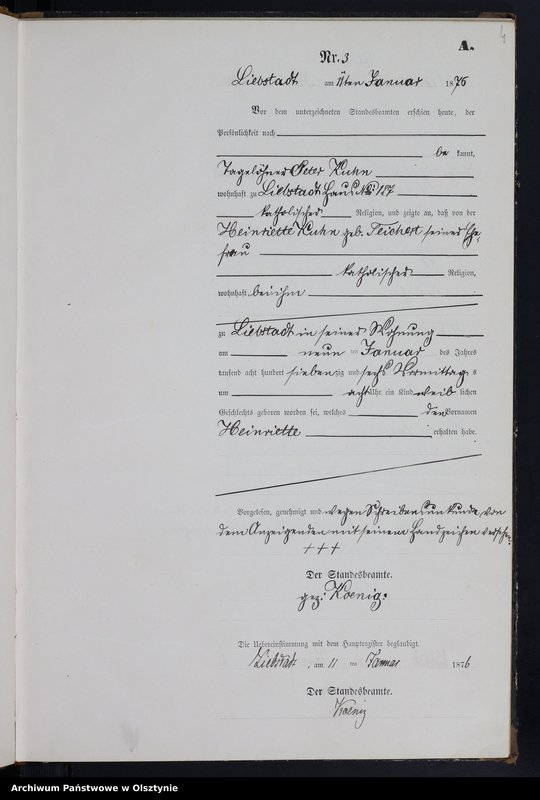 A.
4
Nr. 3
Liebstadt am 11ten Januar 1876
Vor dem unterzeichneten Standesbeamten erschien heute, der
Persönlichkeit nach
be kannt,
Tagelöhner Peter Kuhn
wohnhaft zu Liebstadt Haus No 127
katholischer Religion, und zeigte an, daß von der
Heinriette Kuhn geb. Teichert seiner Ehe-
frau
katholischer Religion,
wohnhaft bei ihm
zu Liebstadt in seiner Wohnung
am neun ten Januar des Jahres
tausend acht hundert siebenzig und sechs Vormittags
um acht Uhr ein Kind weib lichen
Geschlechts geboren worden sei, welches den Vornamen
Heinriette erhalten habe.
Vorgelesen, genehmigt und wegen Schreibensunkunde von
dem Anzeigenden mit seinem Handzeichen versehen.
+++
Der Standesbeamte.
gez: Koenig.
Die Uebereinstimmung mit dem Hauptregister beglaubigt.
Liebstadt, am 11 ten Januar 1876
Der Standesbeamte.
Koenig
Archiwum Państwowe w Olsztynie